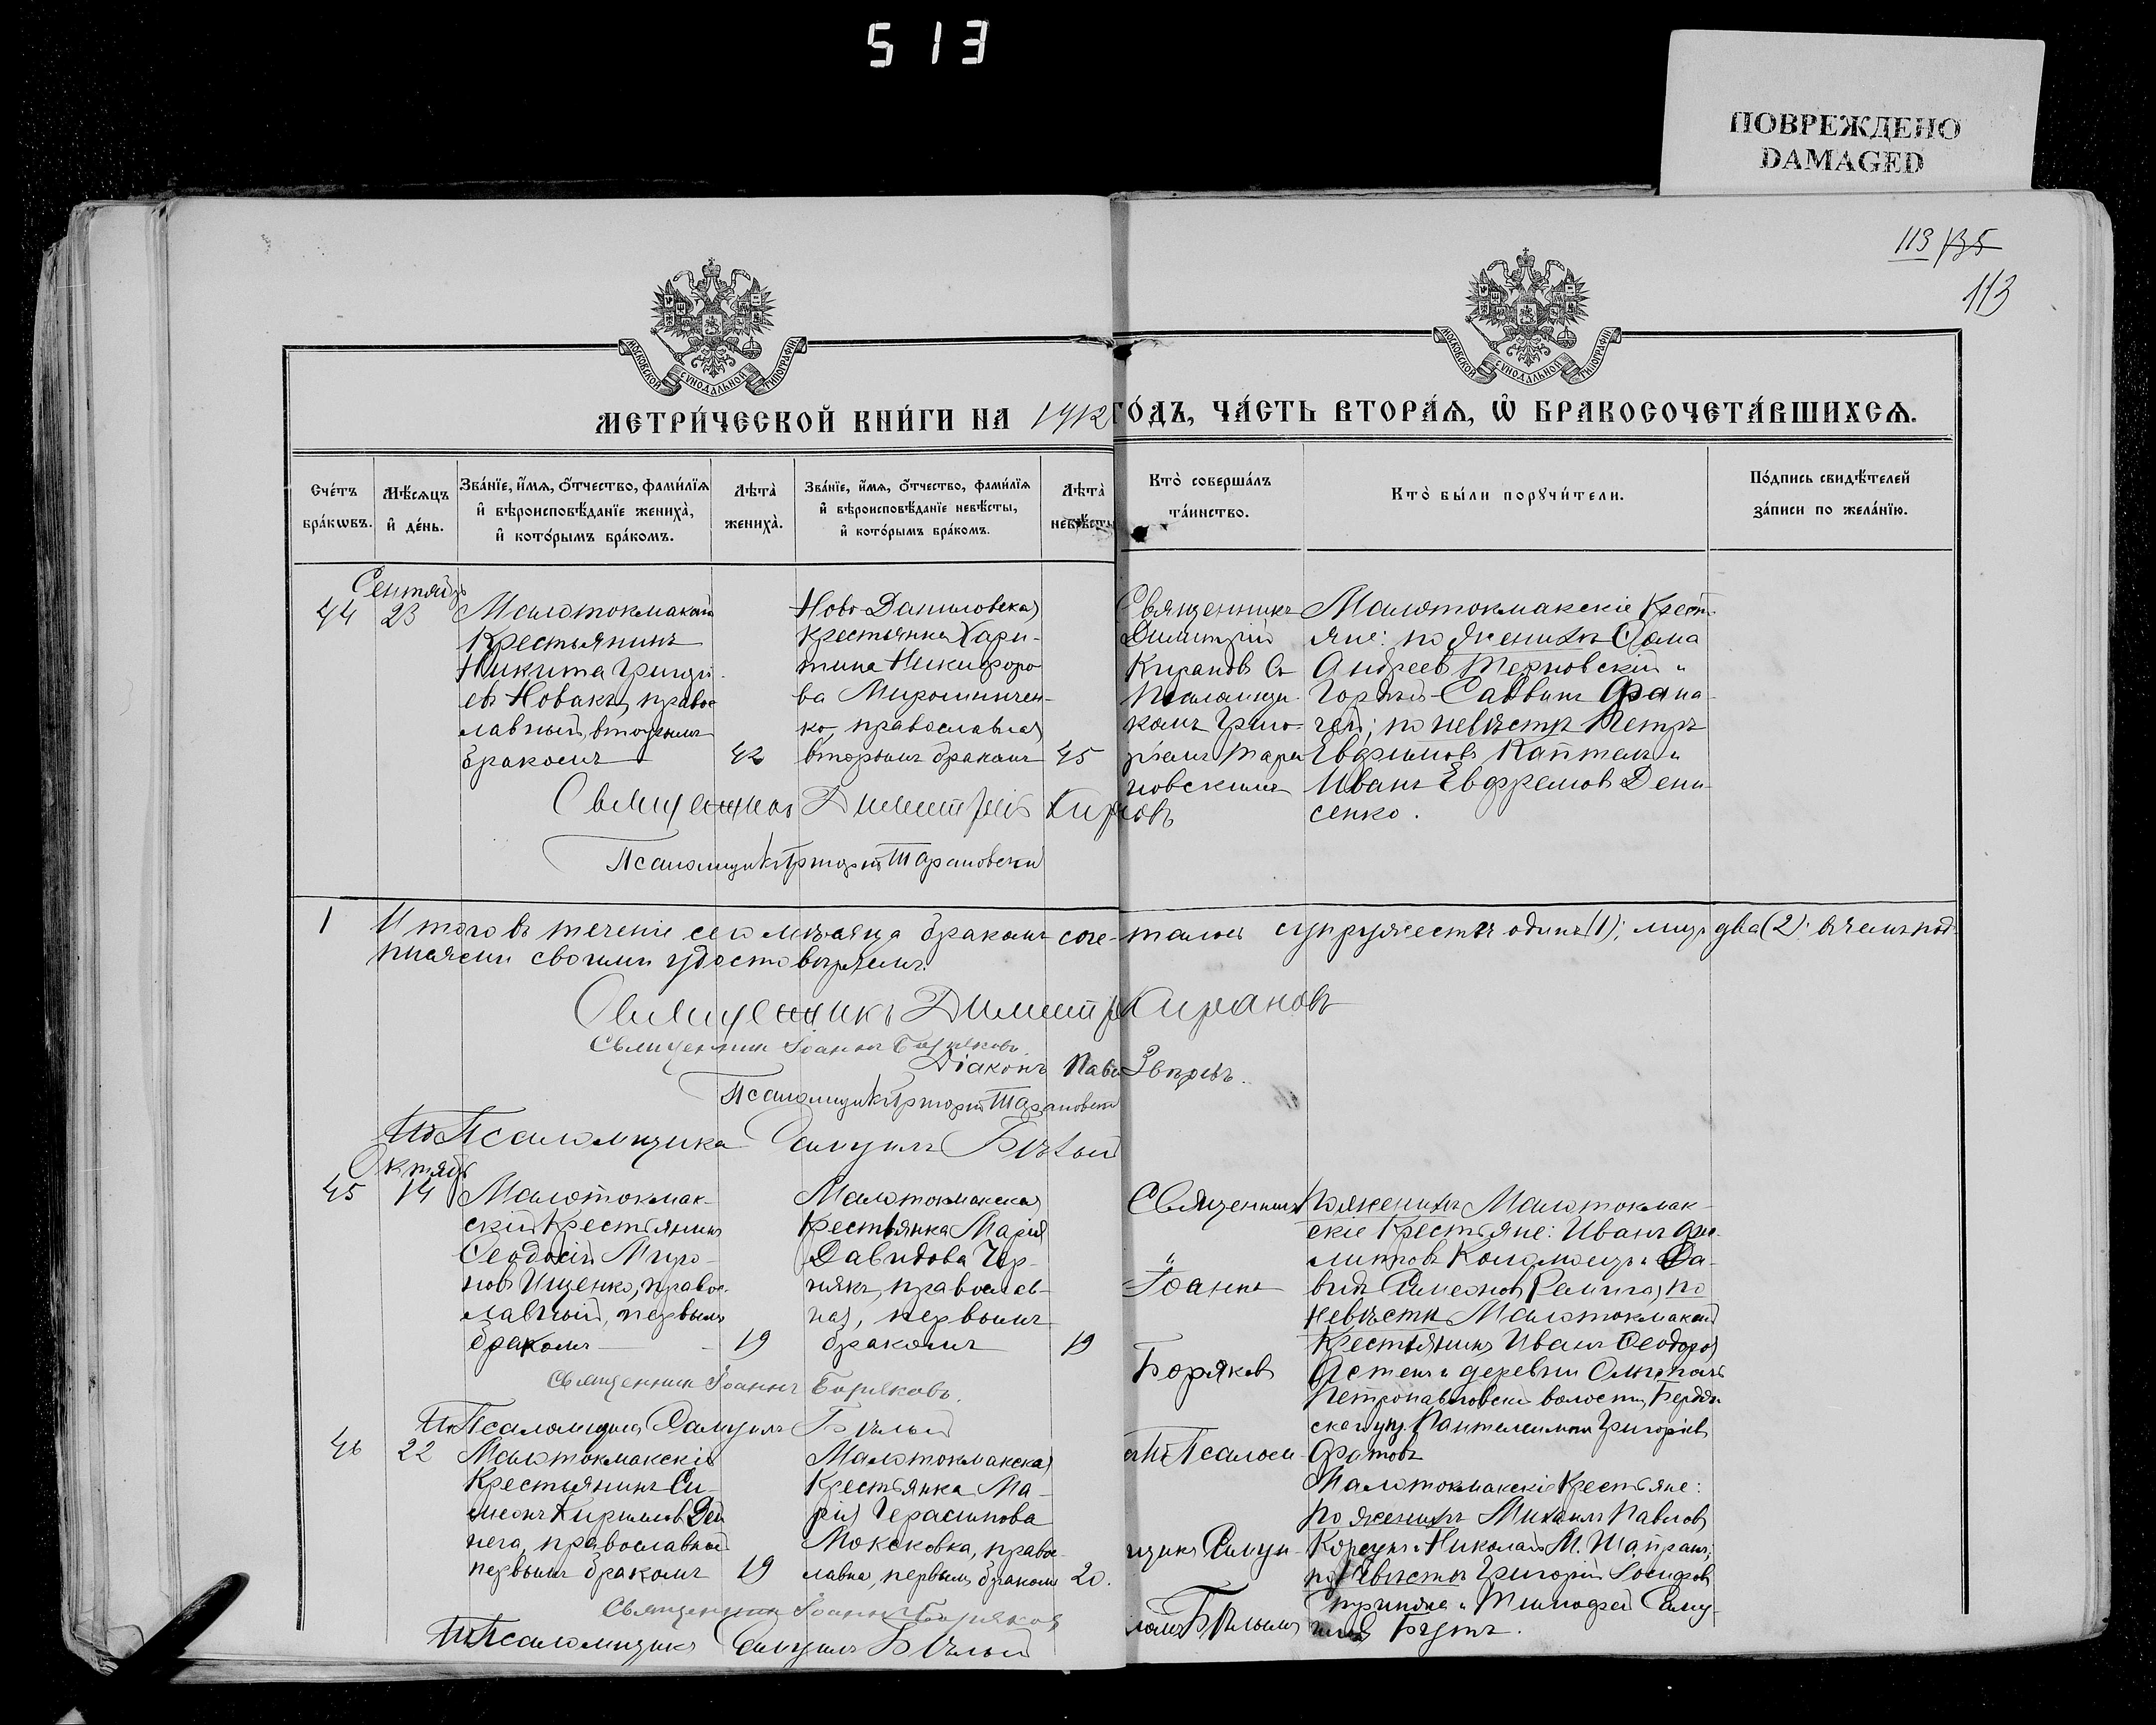 513
ПОВРЕЖДЕНО
DAMAGED
113 135
113
МОСКОВСКОЙ СѴНОДАЛЬНОЙ ТИПОГРАФІИ
МОСКОВСКОЙ СѴНОДАЛЬНОЙ ТИПОГРАФІИ
МЕТРИ́ЧЕСКОЙ КНИ́ГИ НА 1912 ГО́ДЪ, ЧА́СТЬ ВТОРА́Ѧ, Ѡ҆ БРАКОСОЧЕТА́ВШИХСѦ.
Сче́тъ бра́кѡвъ.
Мѣ́сѧцъ и҆ де́нь.
Зва́нїе, и҆́мѧ, ѻ҆́тчество, фами́лїѧ и҆ вѣроисповѣ́данїе жениха̀, и҆ кото́рымъ бра́комъ.
Лѣта̀ жениха̀.
Зва́нїе, и҆́мѧ, ѻ҆́тчество, фами́лїѧ и҆ вѣроисповѣ́данїе невѣ́сты, и҆ кото́рымъ бра́комъ.
Лѣта̀ невѣ́сты
Кто̀ соверша́лъ та́инство.
Кто̀ бы́ли порꙋчи́тели.
По́дпись свидѣ́телей за́писи по жела́нїю.
Сентябрь
44
23
Малотокмакскій
Крестьянинъ
Никита Григорі-
евъ Новакъ, правос
лавный, вторымъ
бракомъ
42
Ново-Даниловская
Крестьянка Хари-
тина Никифоро
ва Мирошничен-
ко, православная
вторымъ бракомъ
45
Священникъ
Димитрій
Кирановъ съ
Псаломщи-
комъ Григо-
ріемъ Тара
новскимъ
Малотокмакскіе Крестья-
яне: по женихѣ Ѳома
Андреевъ Терновскій и
Гордѣй Саввинъ
по невѣстѣ Петръ
Евфимовъ Каптанъ и
Иванъ Ефремовъ Дени-
сенко.
Священникъ Димитрій Кирановъ
Псаломщикъ Григорій Тарановскій
1 Итого въ теченіе сего мѣсяца бракомъ соче-талось супружества одинъ (1); лицъ два (2); въ чемъ под-
писями своими удостовѣряемъ.
Священникъ Димитрій Кирановъ
Священникъ Іоаннъ Боряковъ
Діаконъ Павелъ Звѣревъ.
Псаломщикъ Григорій Тарановскій
Ио Псаломщика Самуилъ Бѣлый
Октябрь
45
14
Малотокмак-
скій Крестьянинъ
Ѳеодосій Миро-
новъ Ищенко, правос-
лавный, первымъ
бракомъ
19
Малотокмакская
Крестьянка Марія
Давидова Чер-
някъ, православ-
ная, первымъ
бракомъ
19
Священникъ
Іоаннъ
Боряковъ
По женихѣ Малотокмак-
скіе Крестьяне: Иванъ
Коломоецъ и Да-
видъ Симеоновъ по
невѣстѣ Малотокмакскій
Крестьянинъ Иванъ Ѳеодоровъ
и деревни
Петропавловской волости, Бердян-
скаго уѣз. Пантелеимонъ Григорьевъ
Фатовъ
Священникъ Іоаннъ Боряковъ.
Ио Псаломщика Самуилъ Бѣлый
46
22
Малотокмакскій
Крестьянинъ Си-
меонъ Кирилловъ Дей
нега, православный
первымъ бракомъ
19
Малотокмакская
Крестьянка Ма-
рія Герасимова
Моксковка, правос-
лавна, первымъ бракомъ
20.
съ Ио Псалом-
щика Самуи-
ломъ Бѣлымъ
Малотокмакскіе Крестьяне:
по женихѣ Михаилъ Павловъ
Корсунъ и Николай М. Шапранъ;
по невѣстѣ Григорій Іосифовъ
и Тимофей Саму-
иловъ Бутъ.
Священникъ Іоаннъ Боряковъ
Ио Псаломщика Самуилъ Бѣлый